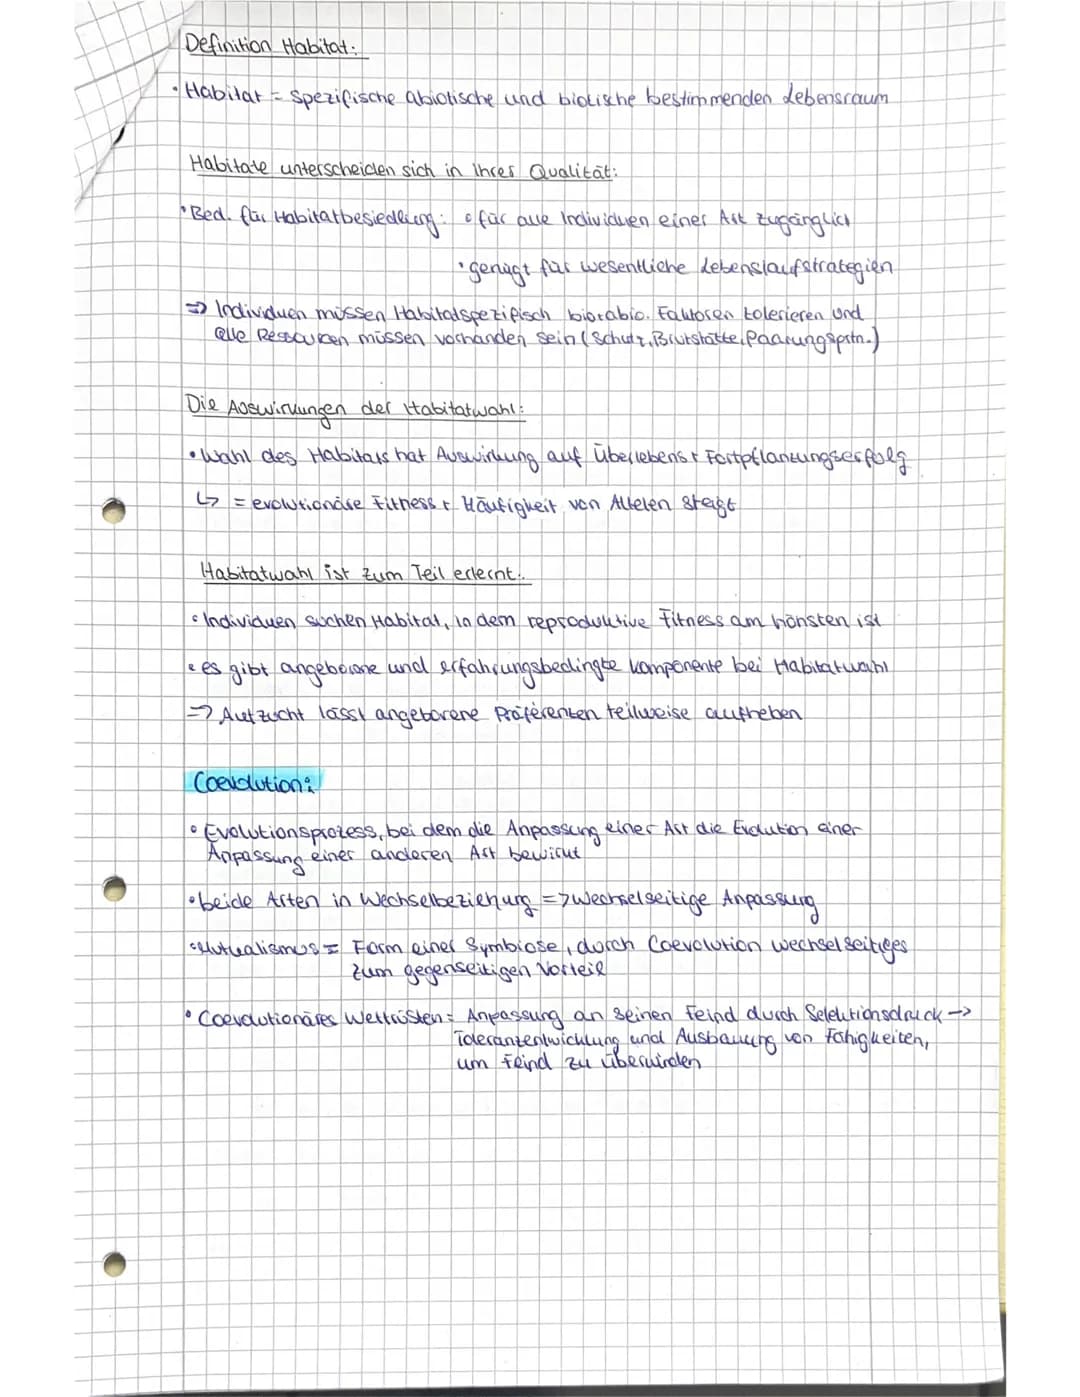 Definition Habitat:
• Habitat = Spezifische abiotische und biotische bestimmenden Lebensraum
Habitate unterscheiden sich in Ihrer Qualität:
• Bed. für Habitatbesiedlung: • für alle Individuen einer Art zugänglich
• genügt für wesentliche Lebenslaufstrategien
=> Individuen müssen Habitatspezifisch bio+abio. Faktoren tolerieren und
alle Ressourcen müssen vorhanden sein (Schutz, Brutstätte, Paarungsprtn.)
Die Auswirkungen der Habitatwahl:
• Wahl des Habitats hat Auswirkung auf Überlebens + Fortpflanzungserfolg
↳ = evolutionäre Fitness + Häufigkeit von Allelen steigt
Habitatwahl ist zum Teil erlernt:
• Individuen suchen Habitat, in dem reproduktive Fitness am höhsten ist
• es gibt angeborene und erfahrungsbedingte Komponente bei Habitatwahl
=> Aufzucht lässt angeborene Präferenzen teilweise aufheben
Coevolution:
• Evolutionsprozess, bei dem die Anpassung einer Art die Evolution einer
Anpassung einer anderen Art bewirkt
• beide Arten in Wechselbeziehung => Wechselseitige Anpassung
• Mutualismus = Form einer Symbiose, durch Coevolution wechselseitiges
zum gegenseitigen Vorteil
• Coevolutionäres Wettrüsten = Anpassung an seinen Feind durch Selektionsdruck ->
Toleranzentwicklung und Ausbauung von Fähigkeiten,
um Feind zu überwinden